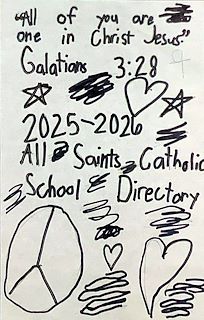 "All of you are
one in Christ Jesus."
Galatians 3:28
2025-2026
All Saints Catholic
School Directory